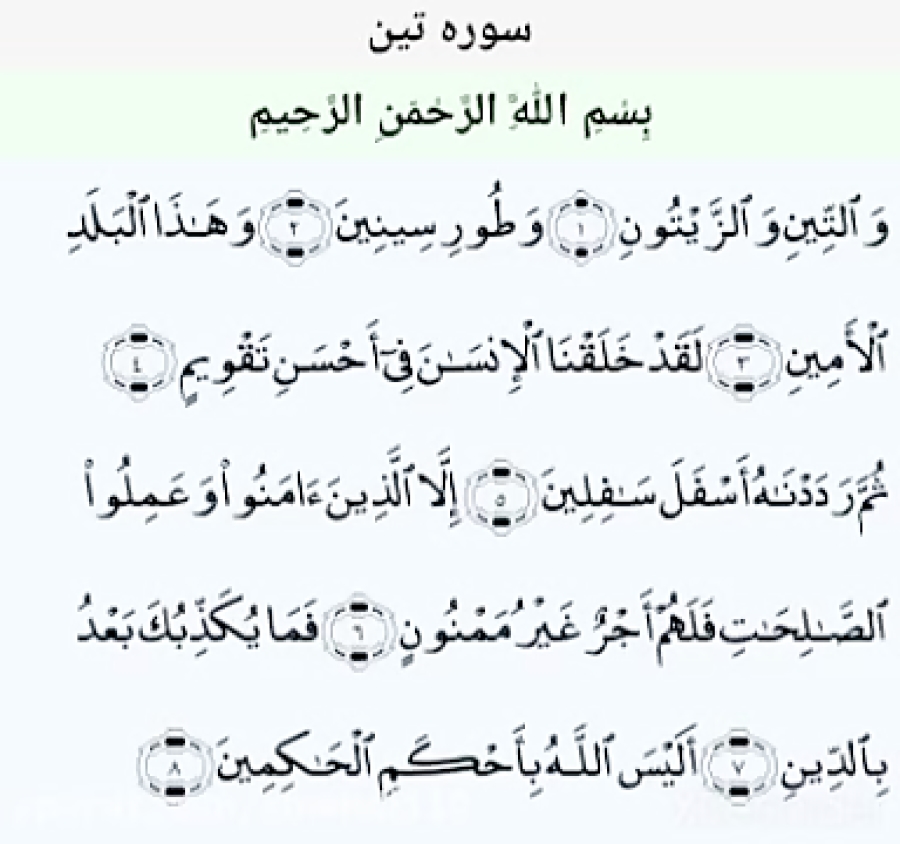 سوره تین
بِسْمِ اللَّهِ الرَّحْمَنِ الرَّحِيمِ
وَٱلتِّينِ وَٱلزَّيْتُونِ ١ وَطُورِ سِينِينَ ٢ وَهَـٰذَا ٱلْبَلَدِ
ٱلْأَمِينِ ٣ لَقَدْ خَلَقْنَا ٱلْإِنسَـٰنَ فِىٓ أَحْسَنِ تَقْوِيمٍ ٤
ثُمَّ رَدَدْنَـٰهُ أَسْفَلَ سَـٰفِلِينَ ٥ إِلَّا ٱلَّذِينَ ءَامَنُوا۟ وَعَمِلُوا۟
ٱلصَّـٰلِحَـٰتِ فَلَهُمْ أَجْرٌ غَيْرُ مَمْنُونٍ ٦ فَمَا يُكَذِّبُكَ بَعْدُ
بِٱلدِّينِ ٧ أَلَيْسَ ٱللَّـهُ بِأَحْكَمِ ٱلْحَـٰكِمِينَ ٨